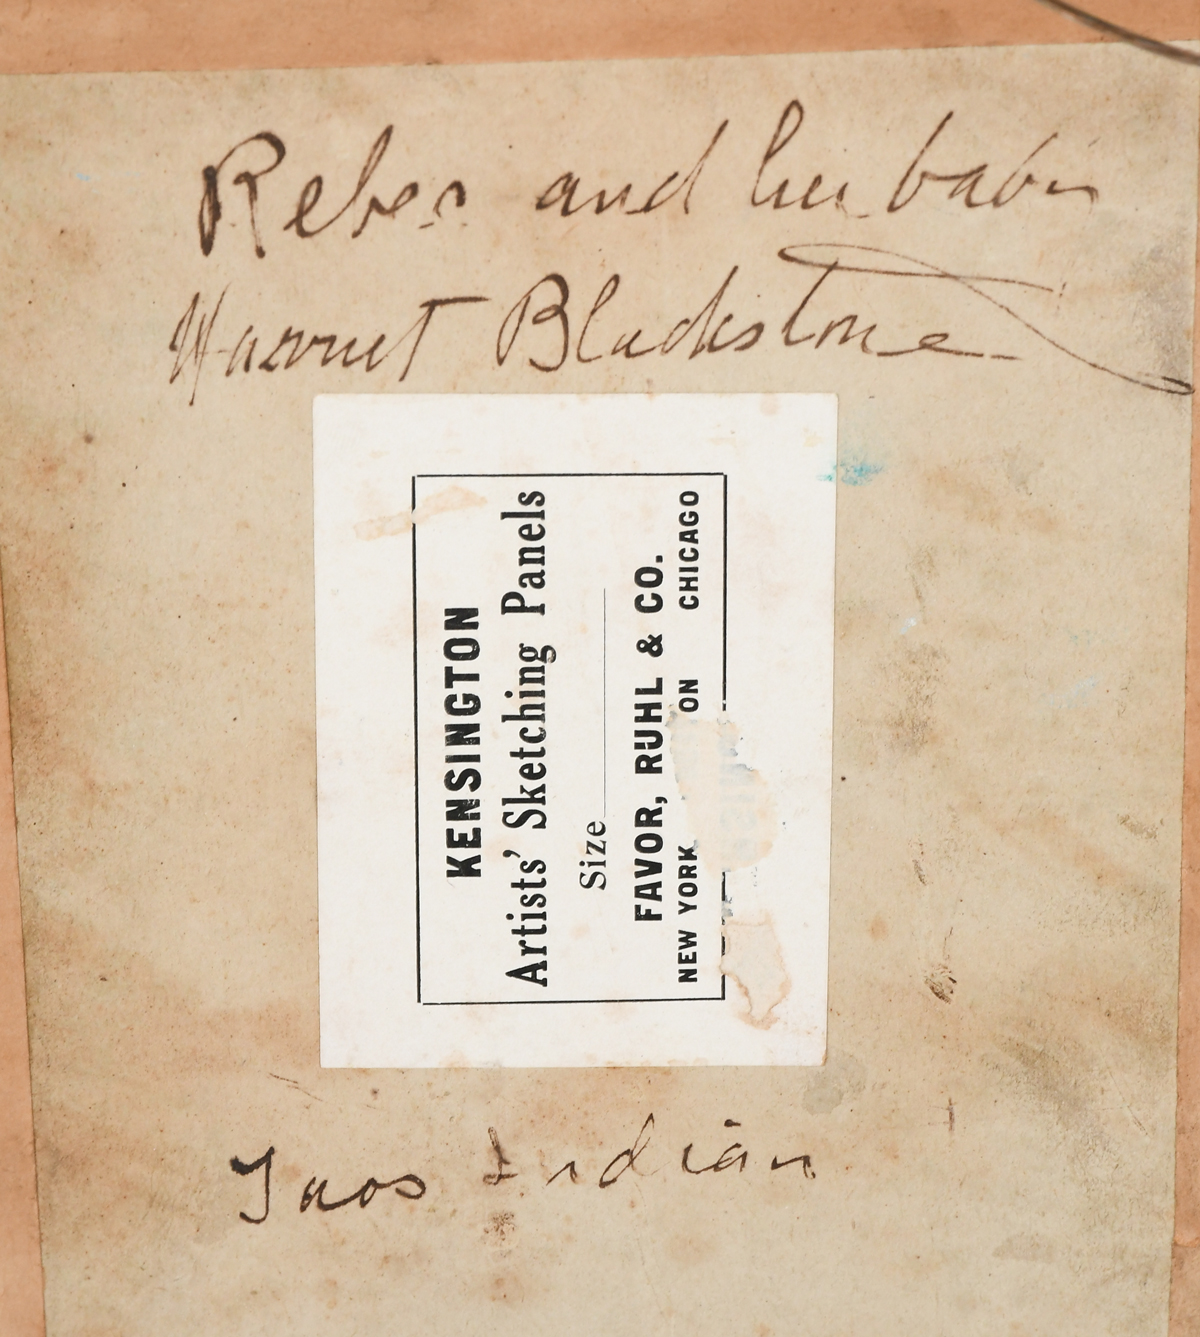 and her baby
Harriet Blackstone
KENSINGTON
Artists' Sketching Panels
Size
FAVOR, RUHL & CO.
NEW YORK ON CHICAGO
Taos Indian